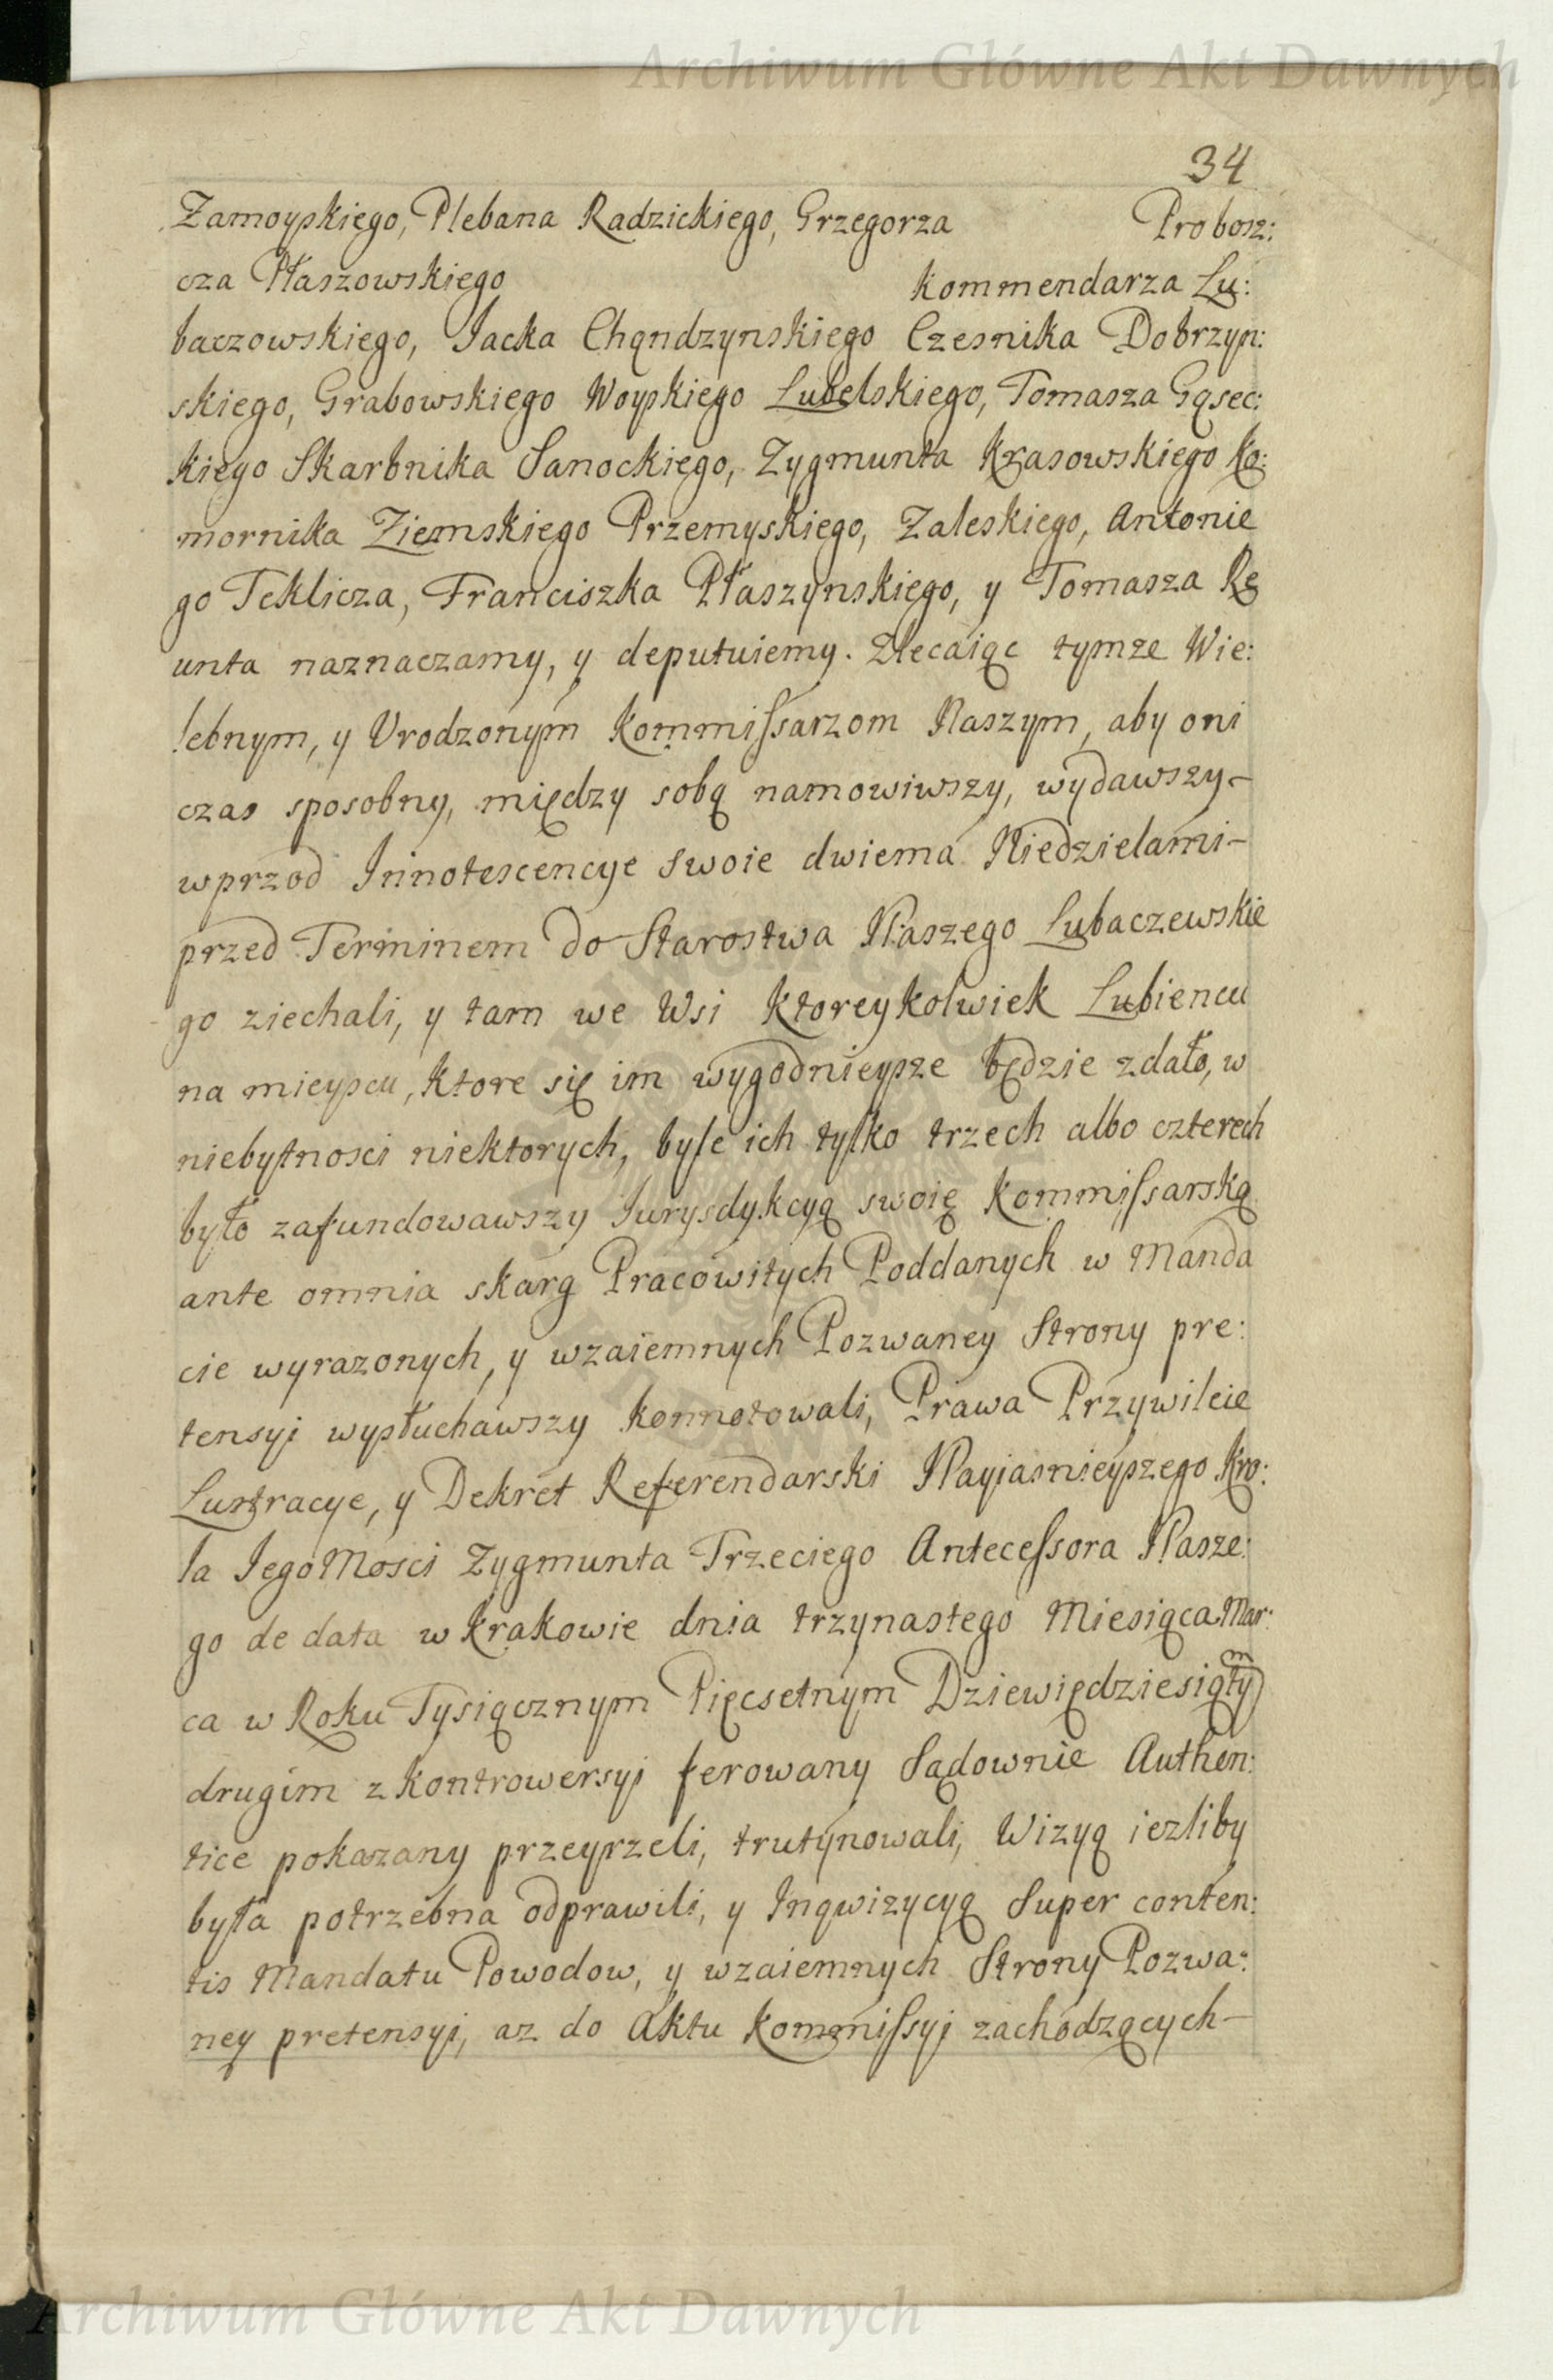 Archiwum Główne Akt Dawnych
34
Zamoyskiego, Plebana Radzickiego, Grzegorza Probosz:
cza Płaszowskiego Kommendarza Lu:
baczowskiego, Jacka Chądzynskiego Czesnika Dobrzyn:
skiego, Grabowskiego Woyskiego Lubelskiego, Tomasza Gąsec:
kiego Skarbnika Sanockiego, Zygmunta Krasowskiego Ko:
mornika Ziemskiego Przemyskiego, Zaleskiego, Antonie
go Teklicza, Franciszka Płaszynskiego, y Tomasza Rę
unta naznaczamy, y deputuiemy. Zlecaiąc tymze Wie:
lebnym, y Urodzonym Kommissarzom Naszym, aby oni
czas sposobny, między sobą namowiwszy, wydawszy-
wprzod Innotescencye swoie dwiema Niedzielami-
przed Terminem do Starostwa Naszego Lubaczewskie
go ziechali, y tam we Wsi Ktoreykolwiek Lubiencu
na mieyscu, Ktore się im wygodnieysze będzie zdało, w
niebytnosci niektorych, byle ich tylko trzech albo czterech
było zafundowawszy Jurysdykcyą swoię Kommissarską
ante omnia skarg Pracowitych Poddanych w Manda
cie wyrazonych, y wzaiemnych Pozwaney Strony pre:
tensyi wysłuchawszy konnotowali, Prawa Przywileie
Lustracye, y Dekret Referendarski Nayiasnieyszego Kro:
la JegoMosci Zygmunta Trzeciego Antecessora Nasze:
go de data w Krakowie dnia trzynastego Miesiąca Mar:
ca w Roku Tysiącznym Pięcsetnym Dziewiędziesiątym
drugim z kontrowersyi ferowany Sądownie Authen:
tice pokazany przeyrzeli, trutynowali, Wizyą iezliby
była potrzebna odprawili, y Inqwizycyą Super conten:
tis Mandatu Powodow, y wzaiemnych Strony Pozwa:
ney pretensyi, az do Aktu Kommissyi zachodzących-
Archiwum Główne Akt Dawnych